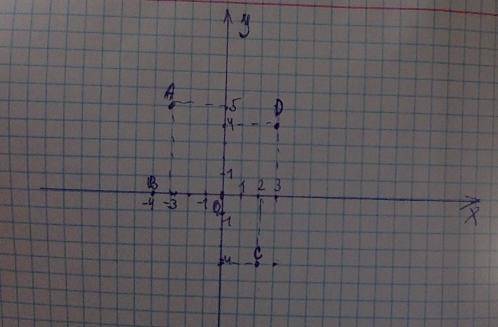 y
A
5
4
D
1
B
1 2 3
-4 -3 -1 0
x
-1
C
-4